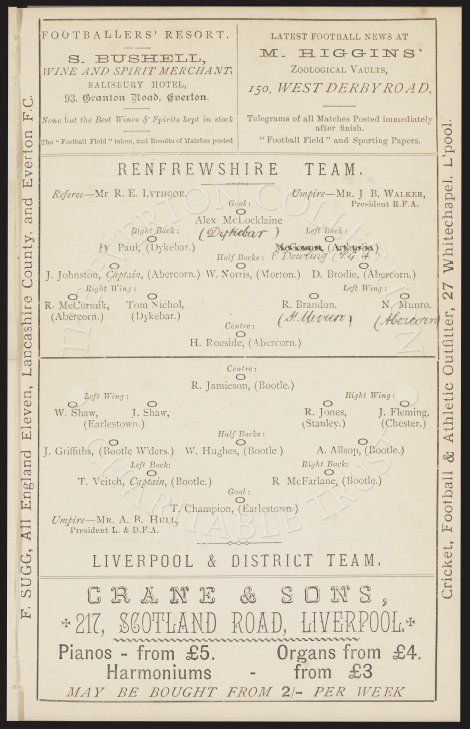 FOOTBALLERS' RESORT.
S. BUSHELL,
WINE AND SPIRIT MERCHANT,
SALISBURY HOTEL,
93, Granton Road, Everton.
None but the Best Wines & Spirits kept in stock
The "Football Field" taken, and Results of Matches posted
LATEST FOOTBALL NEWS AT
M. HIGGINS'
ZOOLOGICAL VAULTS,
150, WEST DERBY ROAD,
Telegrams of all Matches Posted immediately
after finish.
"Football Field" and Sporting Papers.
F. SUGG, All England Eleven, Lancashire County, and Everton F.C.
RENFREWSHIRE TEAM.
Referee—Mr R. E. LYTHGOE.
Umpire—MR. J B. WALKER,
President R.F.A.
Goal:
Alex McLocklaine
(Dykebar)
Right Back:
Left Back:
Paul, (Dykebar.)
P. Dowling
Half Backs:
J. Johnston, Captain, (Abercorn.) W. Norris, (Morton.) D. Brodie, (Abercorn.)
Right Wing:
Left Wing:
R. McCormik, Tom Nichol, R. Brandon. N. Munro.
(Abercorn.) (Dykebar.) (St Mirren) (Abercorn)
Centre:
H. Roeside, (Abercorn.)
Centre:
R. Jamieson, (Bootle.)
Left Wing:
Right Wing:
W. Shaw, J. Shaw, R. Jones, J. Fleming,
(Earlestown.) (Stanley.) (Chester.)
Half Backs:
J. Griffiths, (Bootle W'ders.) W. Hughes, (Bootle ) A. Allsop, (Bootle.)
Left Back:
Right Back:
T. Veitch, Captain, (Bootle.) R. McFarlane, (Bootle.)
Goal:
T. Champion, (Earlestown)
Umpire—MR. A. B. HULL,
President L. & D.F.A.
LIVERPOOL & DISTRICT TEAM.
CRANE & SONS,
217, SCOTLAND ROAD, LIVERPOOL.
Pianos - from £5. Organs from £4.
Harmoniums - from £3
MAY BE BOUGHT FROM 2/- PER WEEK
Cricket, Football & Athletic Outfitter, 27 Whitechapel, L'pool.
THE EVERTON COLLECTION
CHARITABLE TRUST